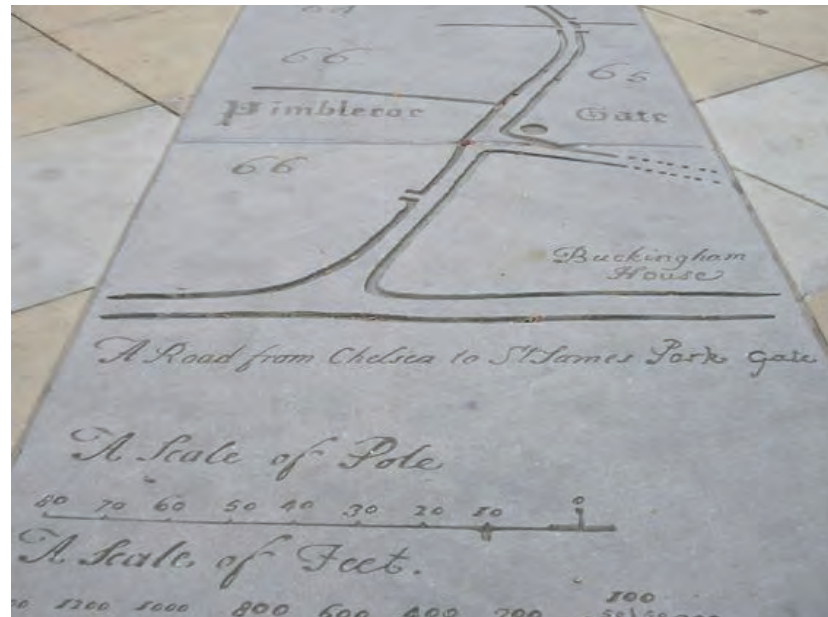 64
66
65
Pimblecoe Gate
66
Buckingham
House
A Road from Chelsea to St James Park gate
A Scale of Pole
80 70 60 50 40 30 20 10 0
A Scale of Feet.
1200 1000 800 600 400 200 100